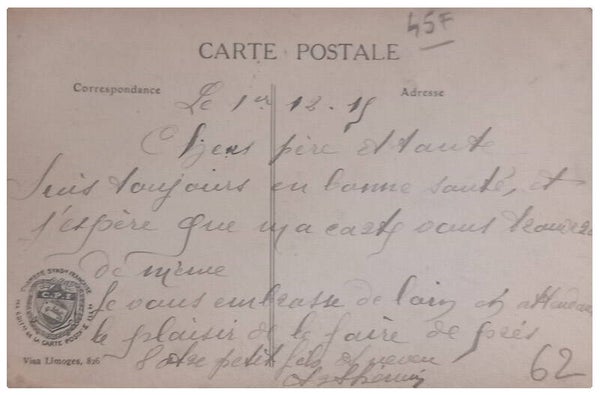 45F
CARTE POSTALE
Correspondance
Adresse
Le 1er 12.15
Chers père et tante
Suis toujours en bonne santé, et
j'espère que ma carte vous trouvera
de même
Je vous embrasse de loin en attendant
le plaisir de le faire de près
Votre petit fils et neveu
CHAMBRE SYNDle FRANÇAISE
DE LA CARTE POSTALE ILLée
Visa Limoges, 826
62